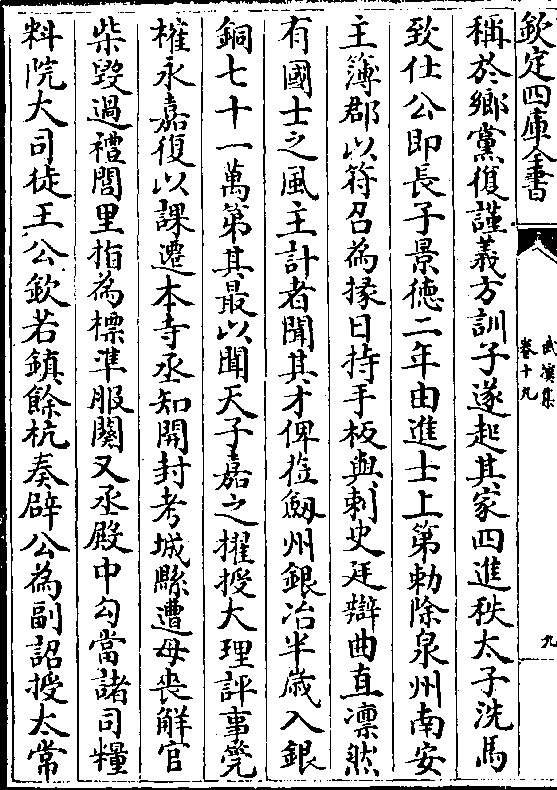 欽定四庫全書
武溪集
卷十九
九
稱於鄉黨復謹義方訓子遂起其家四進秩太子洗馬
致仕公即長子景徳二年由進士上第勅除泉州南安
主簿郡以符召為掾日持手板與刺史廷辯曲直凛然
有國士之風主計者聞其才俾蒞劔州銀冶半歳入銀
銅七十一萬第其最以聞天子嘉之擢授大理評事筦
榷永嘉復以課遷本寺丞知開封考城縣遭母喪解官
柴毀過禮閭里指為標準服闋又丞殿中勾當諸司糧
料院大司徒王公欽若鎮餘杭奏辟公為副詔授太常